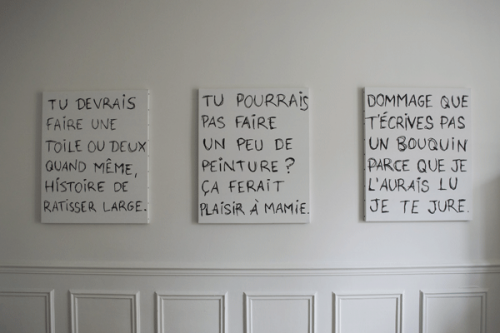 TU DEVRAIS
FAIRE UNE
TOILE OU DEUX
QUAND MÊME,
HISTOIRE DE
RATISSER LARGE.
TU POURRAIS
PAS FAIRE
UN PEU DE
PEINTURE?
ÇA FERAIT
PLAISIR À MAMIE.
DOMMAGE QUE
T'ÉCRIVES PAS
UN BOUQUIN
PARCE QUE JE
L'AURAIS LU
JE TE JURE.